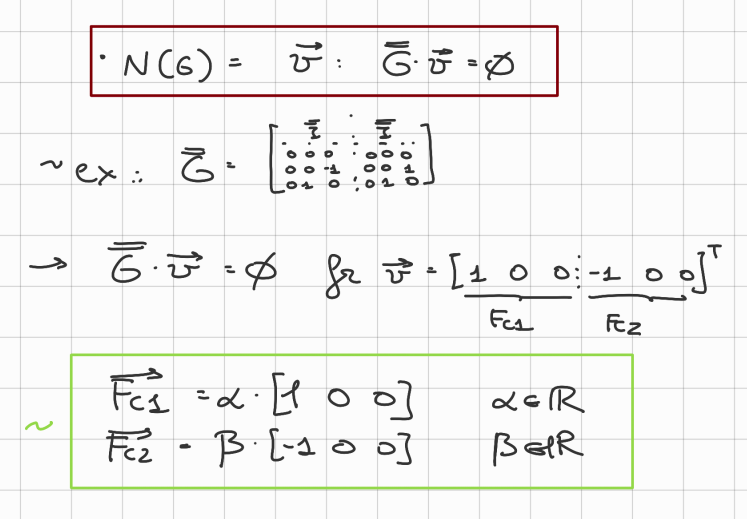 · N(G) = v⃗ : G̿ · v⃗ = ∅
~ ex.: G̅ = [ I̿ ⋮ I̿
0 0 0 ⋮ 0 0 0
0 0 -1 0 0 1
0 1 0 ⋮ 0 1 0 ]
→ G̿ · v⃗ = ∅ for v⃗ = [1 0 0 ⋮ -1 0 0]ᵀ
Fc1 Fc2
F⃗c1 = α · [1 0 0] α ∈ ℝ
~
F⃗c2 = β · [-1 0 0] β ∈ ℝ